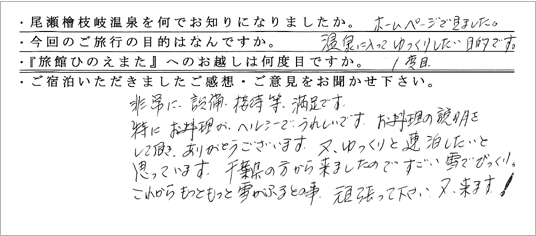 ・尾瀬檜枝岐温泉を何でお知りになりましたか。 ホームページで見ました。
・今回のご旅行の目的はなんですか。 温泉に入ってゆっくりしたい目的です。
・『旅館ひのえまた』へのお越しは何度目ですか。 1度目
・ご宿泊いただきましたご感想・ご意見をお聞かせ下さい。
非常に、設備、接待等、満足です。
特にお料理が、ヘルシーでうれしいです。お料理の説明を
して頂き、ありがとうございます。又、ゆっくりと連泊したいと
思っています。千葉県の方から来ましたのですごい雪でびっくり。
これからもっともっと雪がふるとの事、頑張って下さい。又、来ます!